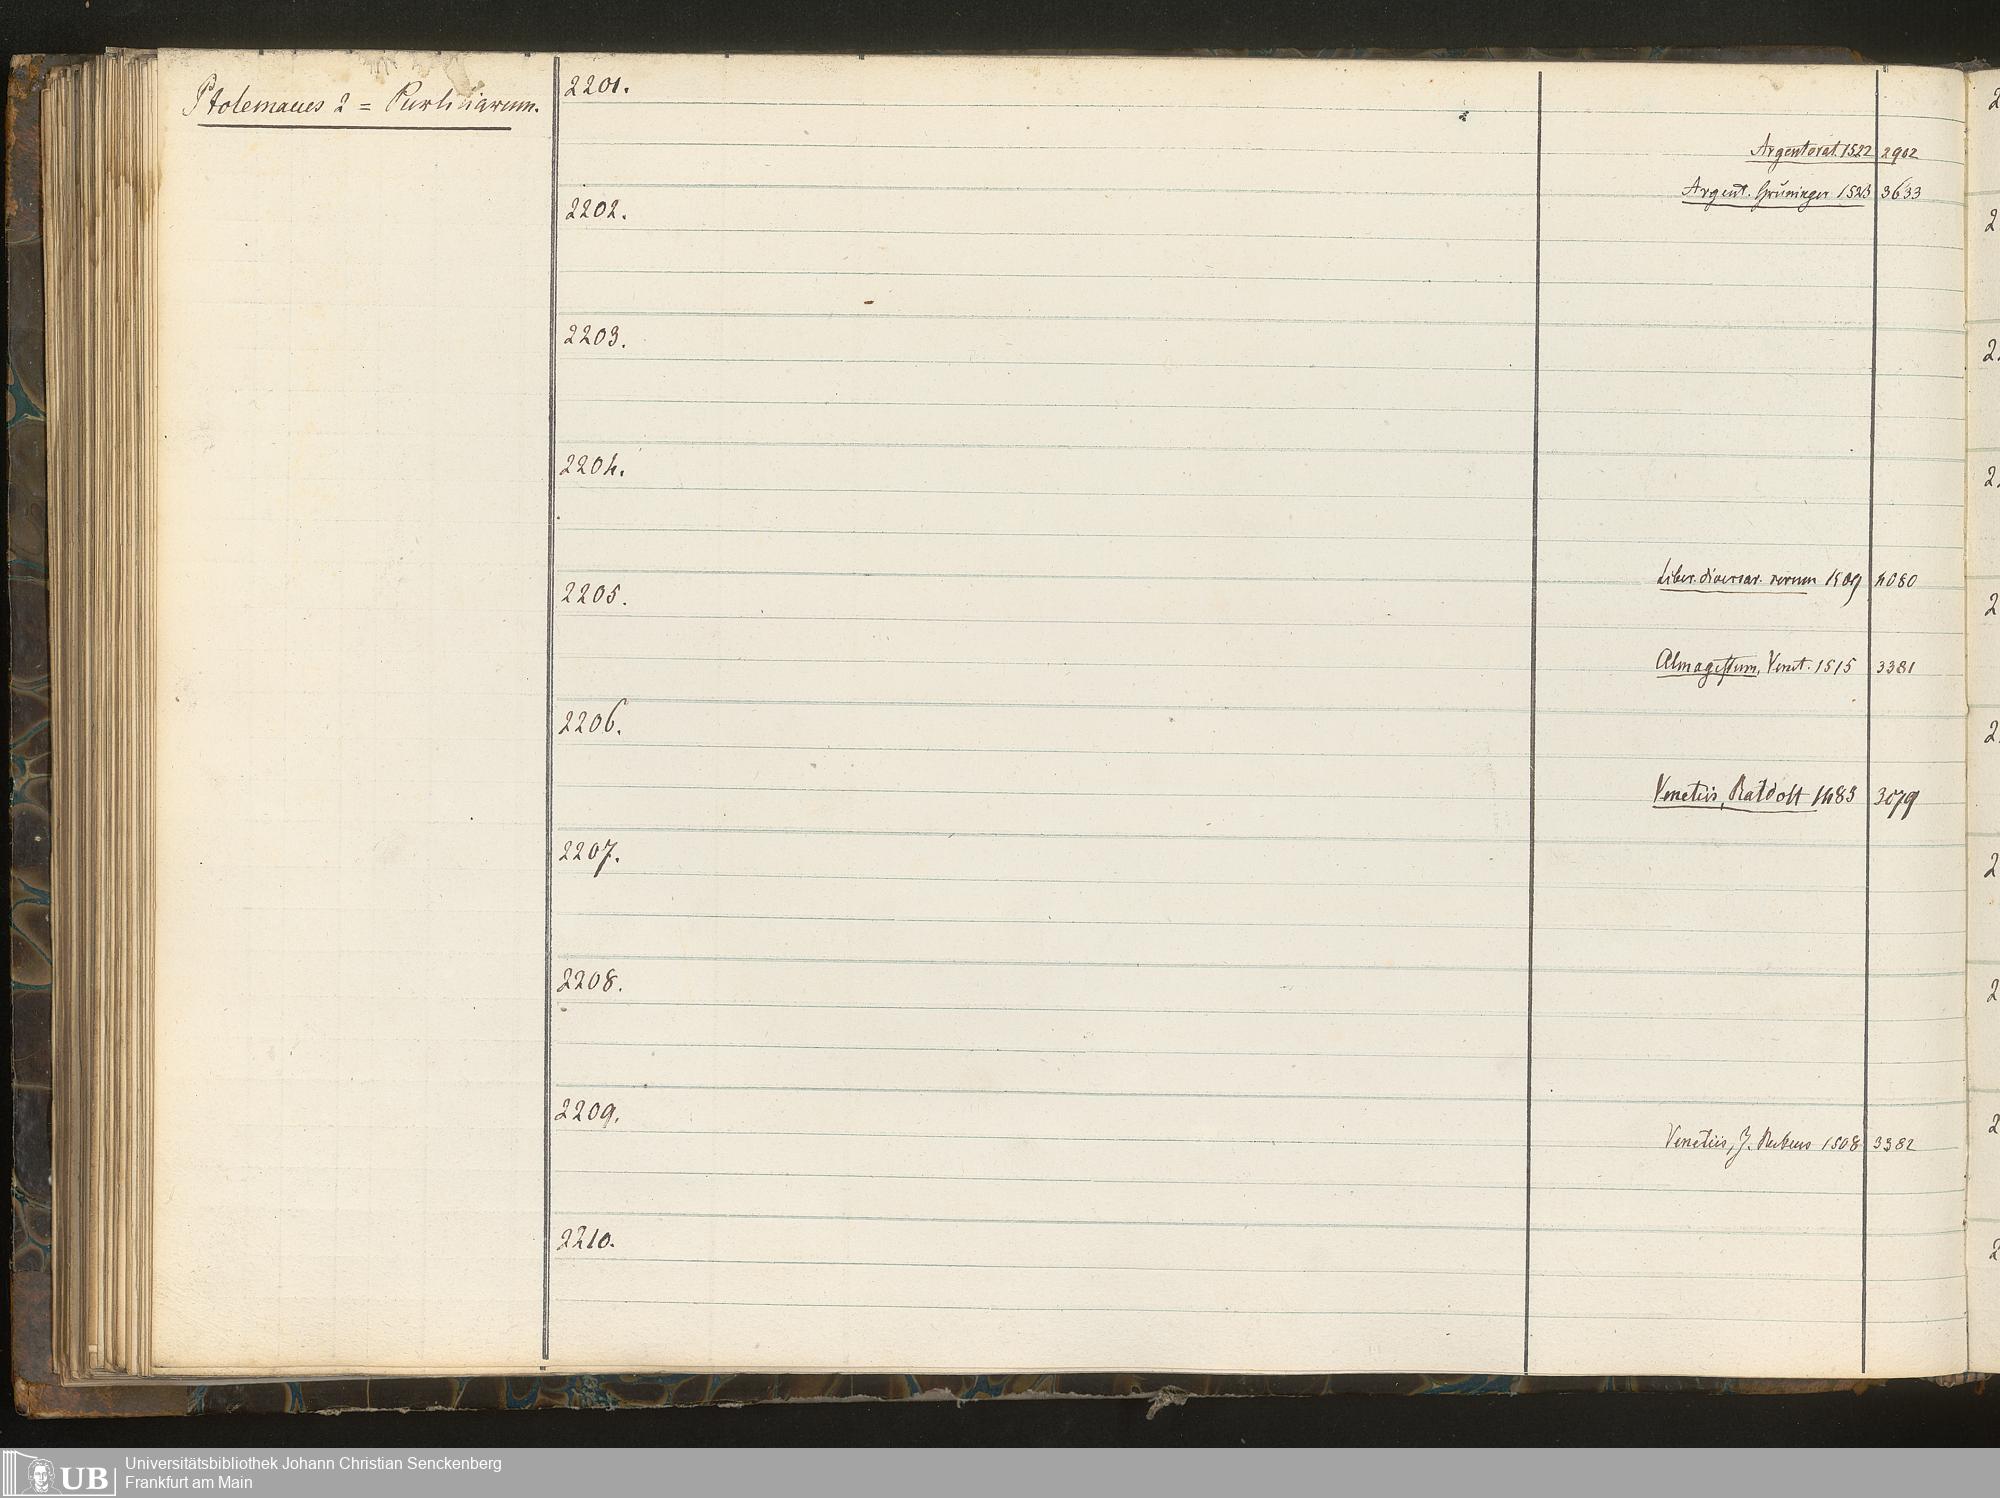 Ptolemaeus 2 = Purliniarum.
2201.
2
Argentorat. 1522 2902
Argent. Grüninger 1523 3633
2202.
2203.
2204.
Liber diversar. rerum 1509 4080
2205.
Almagestum, Venet. 1515 3381
2206.
Venetiis, Ratdolt 1483 3079
2207.
2208.
2209.
Venetiis, J. Rubeus 1508 3382
2210.
UB Universitätsbibliothek Johann Christian Senckenberg
Frankfurt am Main